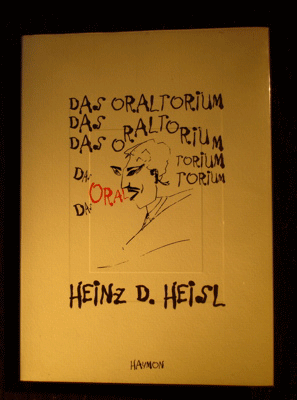 DAS ORALTORIUM
DAS ORALTORIUM
DAS ORALTORIUM
DA ORA TORIUM
DA TORIUM
HEINZ D. HEISL
HAYMON